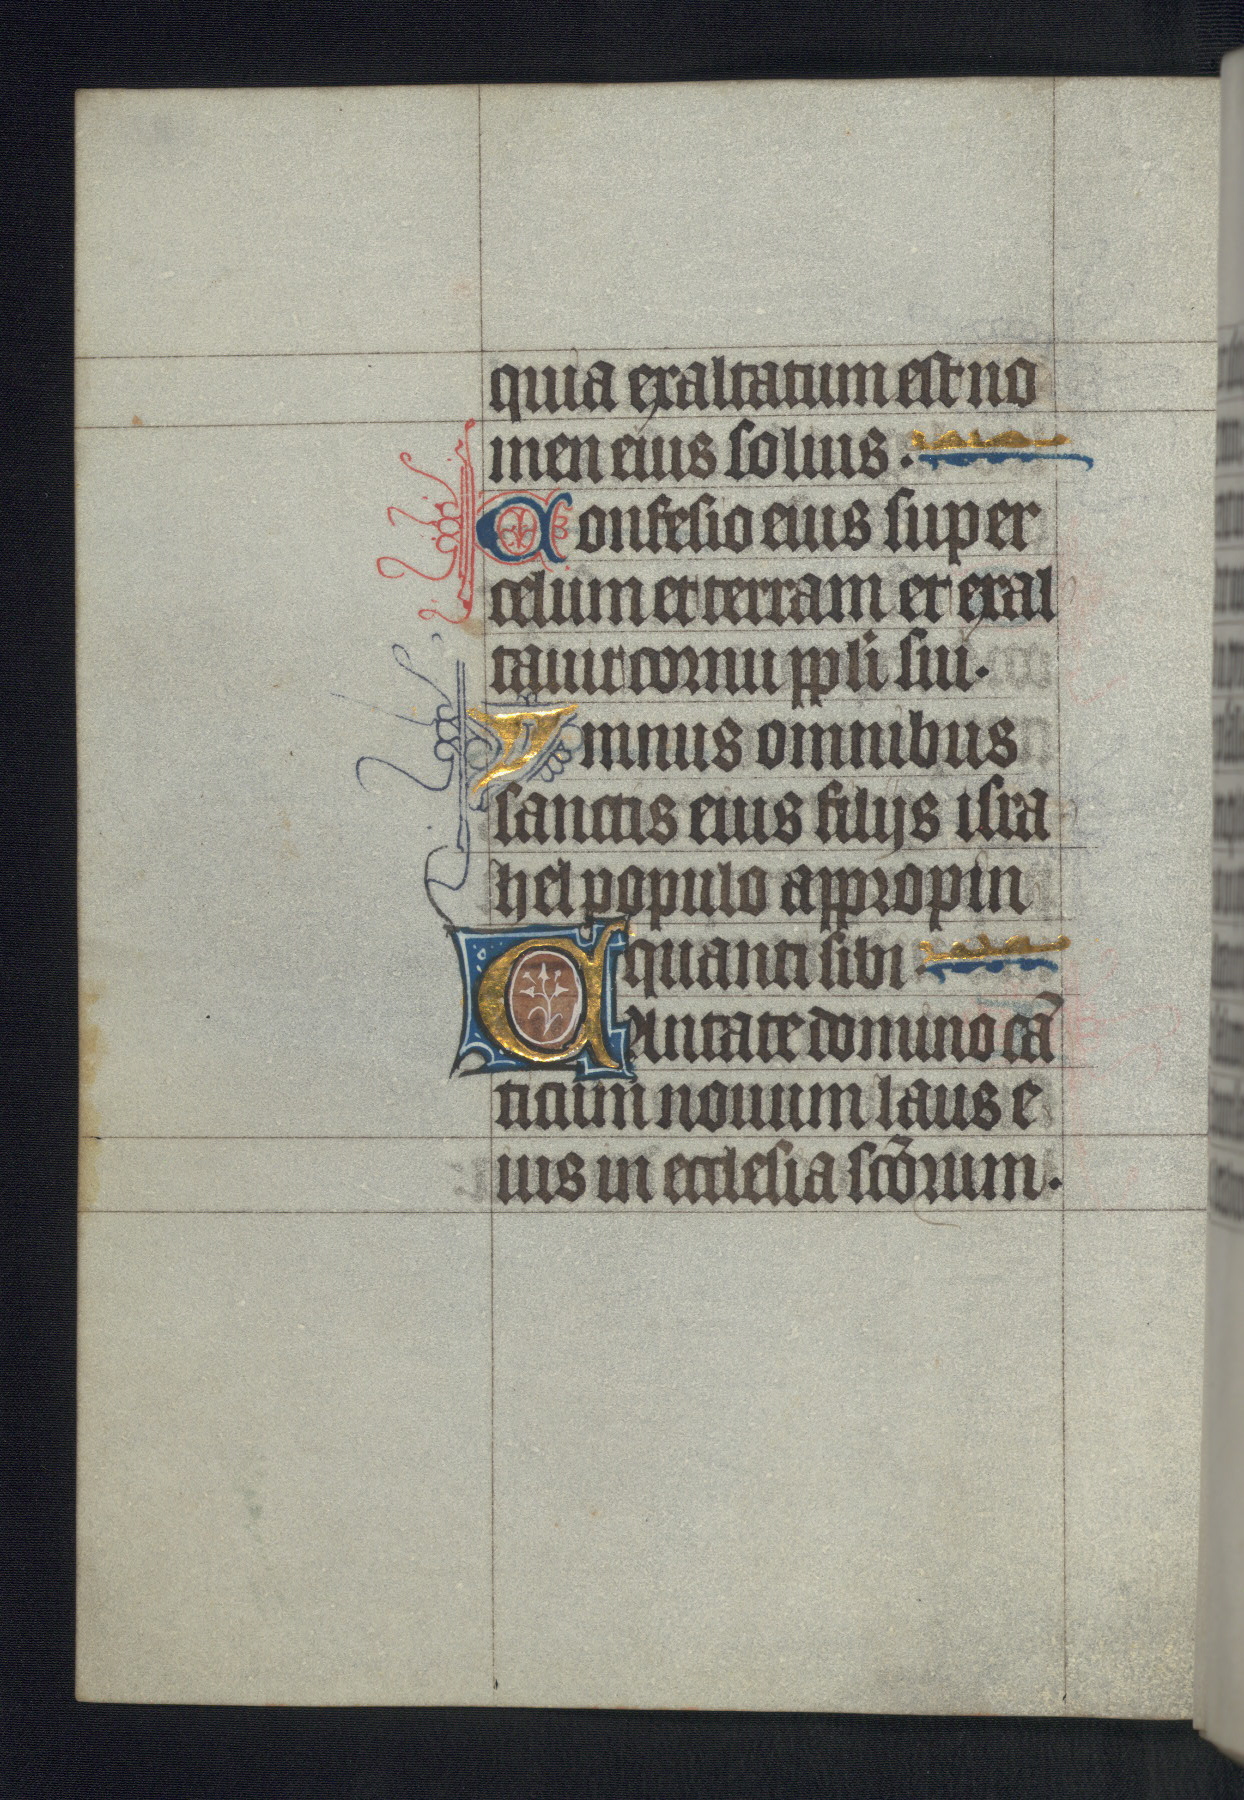 quia exaltatum est no
men eius solius.
Confesio eius super
celum et terram et exal
tauit cornu ppli sui.
Ymnus omnibus
sanctis eius filijs isra
hel populo appropin
quanti sibi.
Cantate domino cã
ticum nouum laus e
ius in ecclesia sc̃orum.